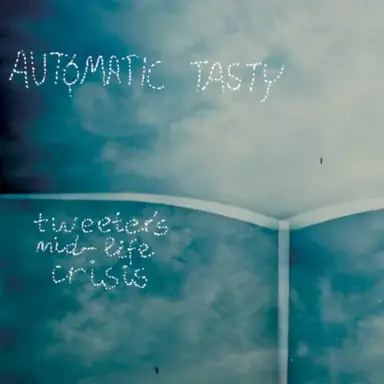 AUTOMATIC TASTY
tweeter's
mid-life
crisis